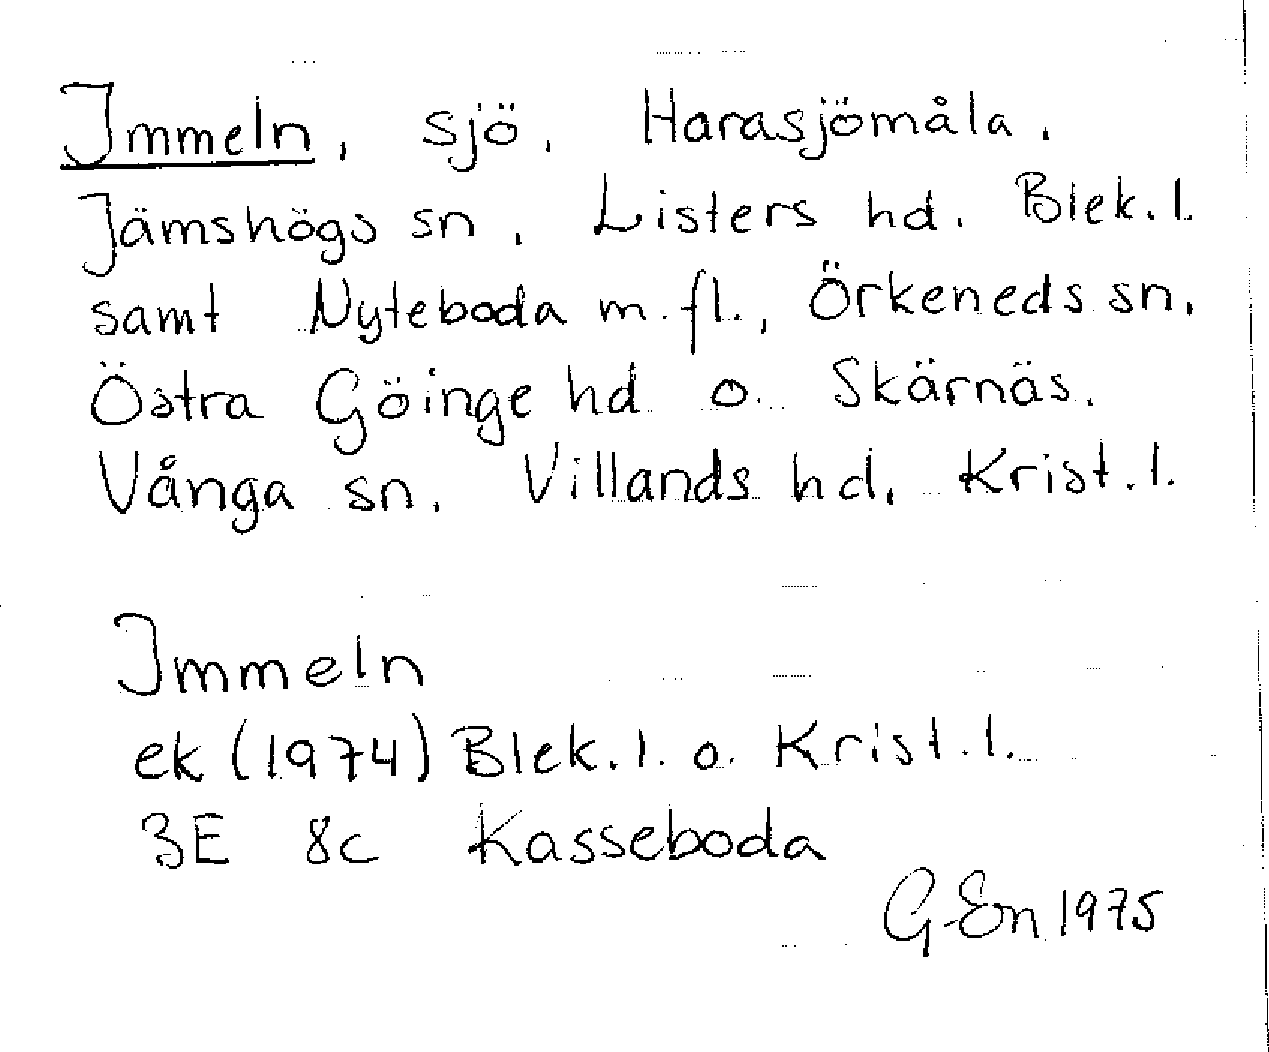 Immeln, sjö, Harasjömåla,
Jämshögs sn, Listers hd, Blek. l.
samt Nyteboda m. fl., Örkeneds sn,
Östra Göinge hd o. Skärnäs,
Vånga sn, Villands hd, Krist. l.
Immeln
ek (1974) Blek. l. o. Krist. l.
3E 8c Kasseboda
G Em 1975